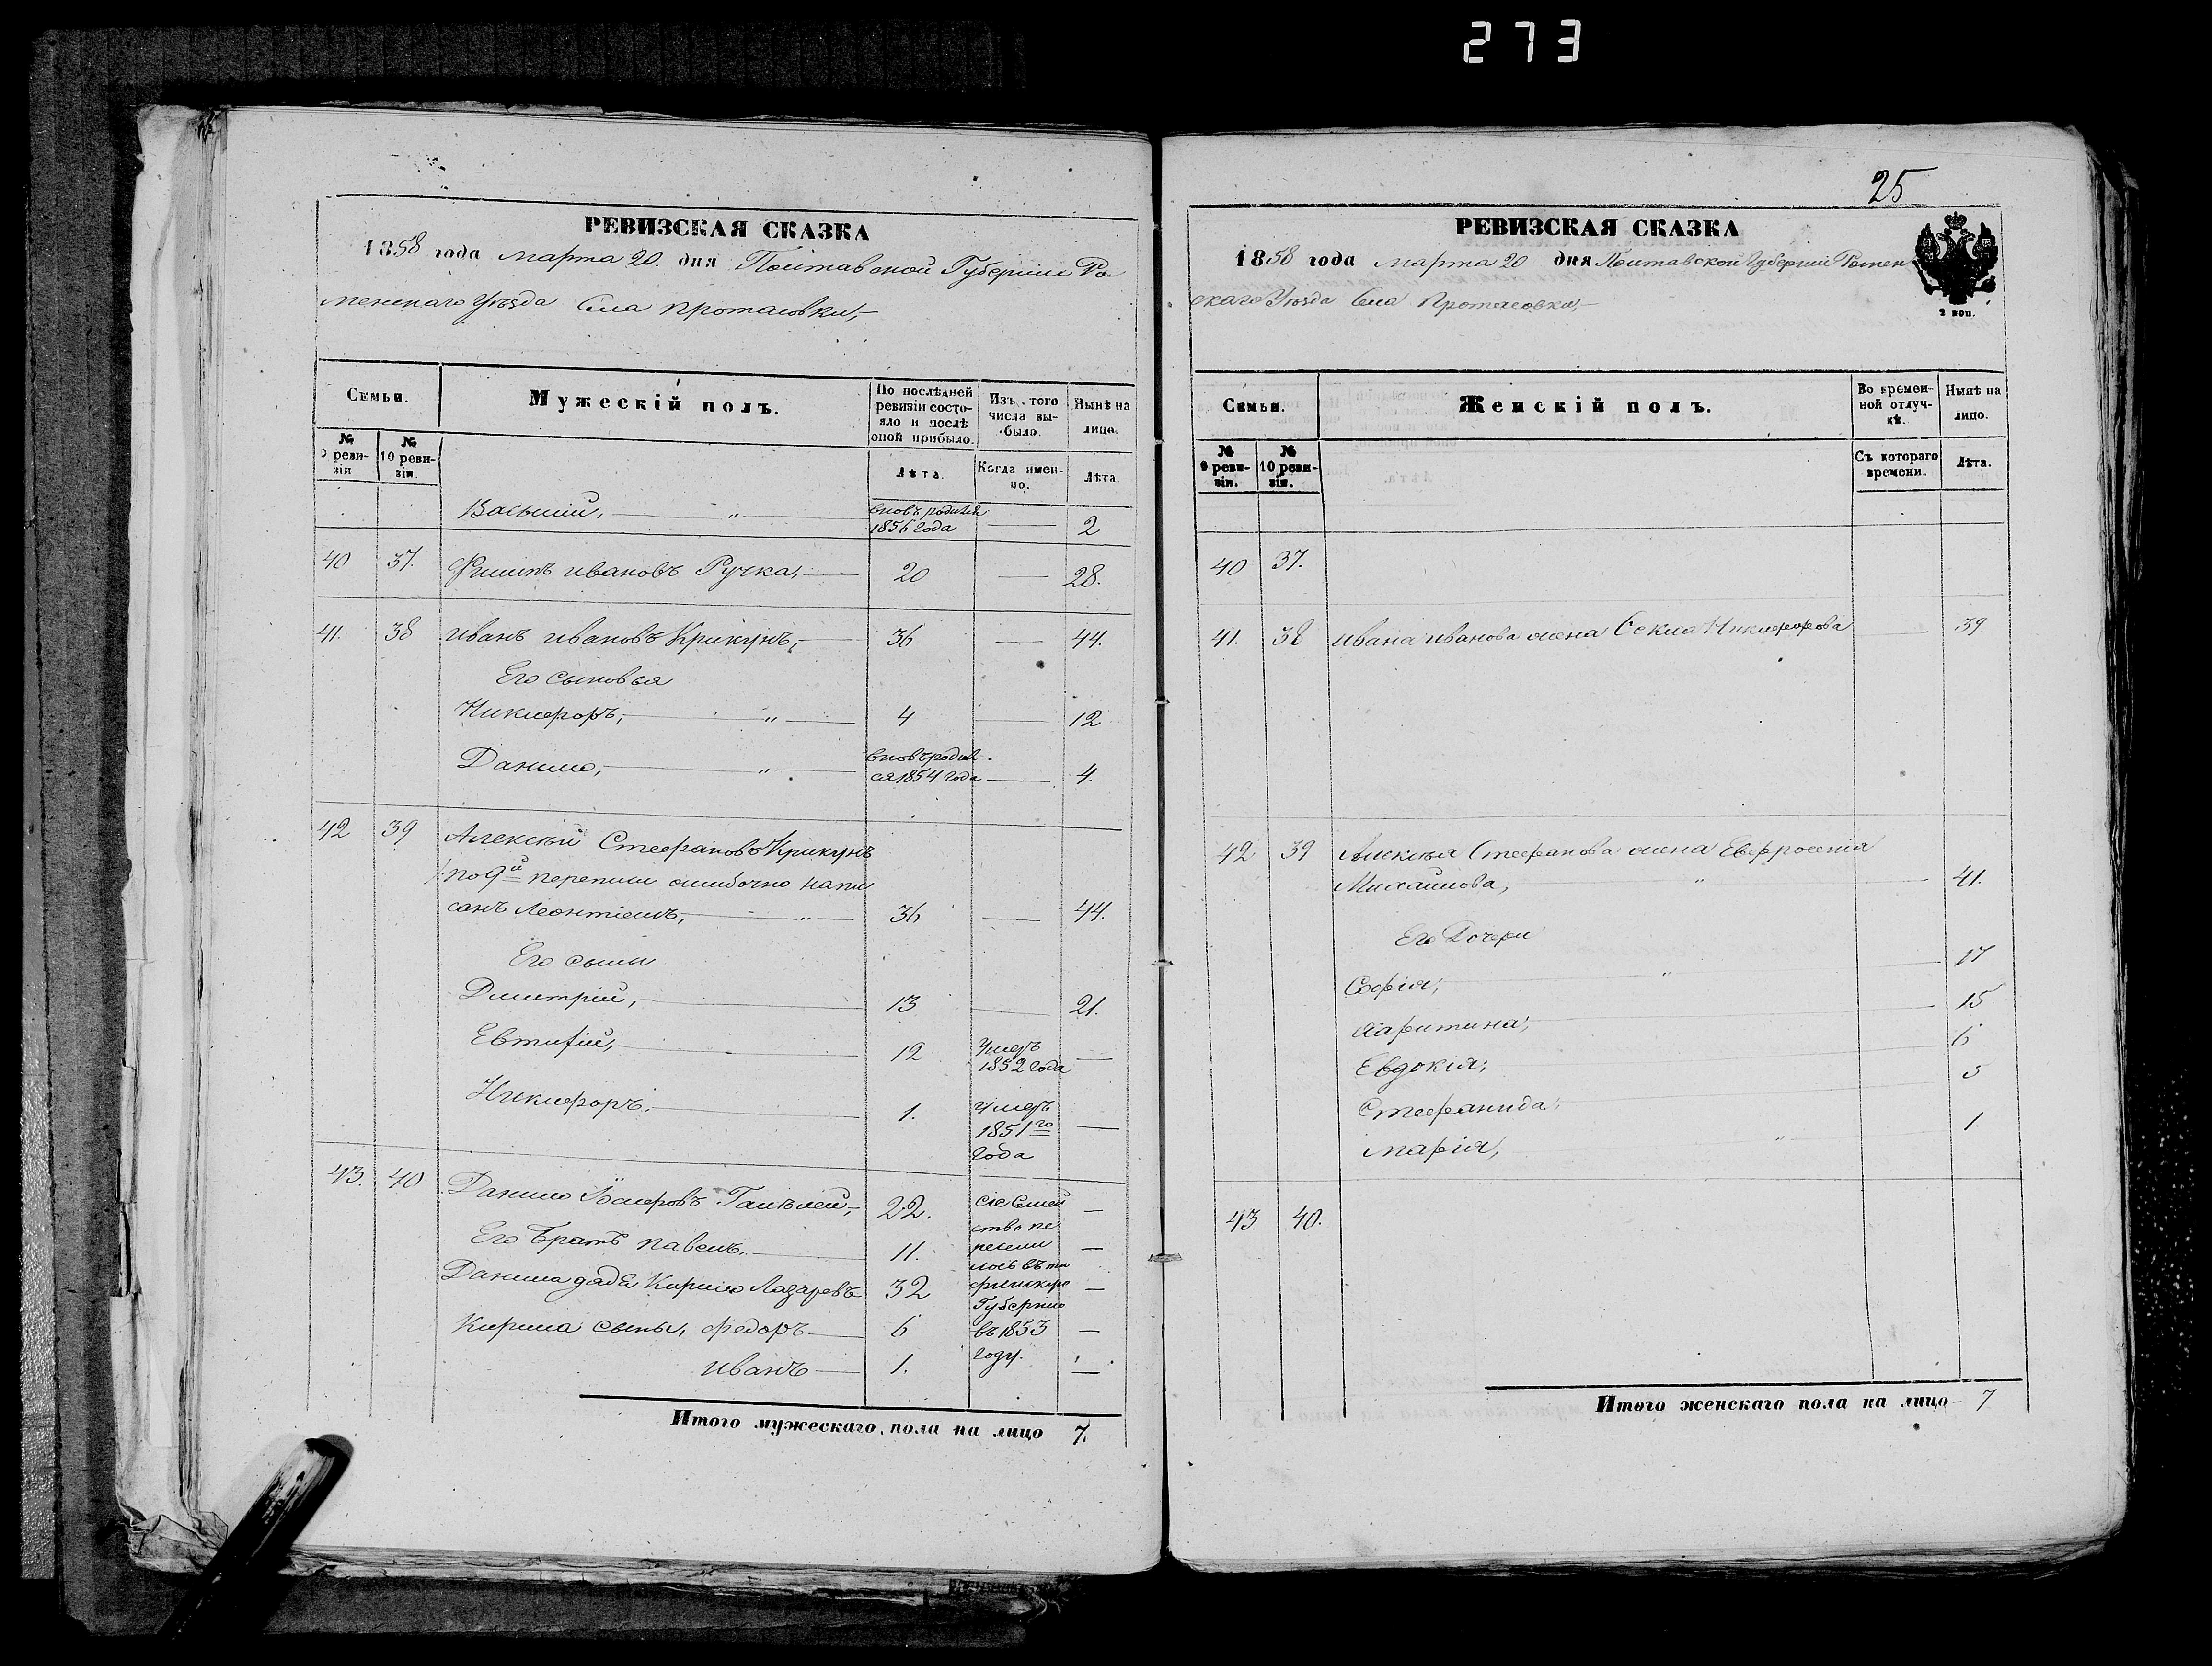 273
РЕВИЗСКАЯ СКАЗКА
1858 года марта 20. дня Полтавской Губерніи Ро
менскаго Уѣзда Села Протасовки,
Семьи.
Мужескій полъ.
По послѣдней ревизіи состояло и послѣ оной прибыло.
Изъ того числа выбыло.
Нынѣ на лицо.
№ 9 ревизіи
№ 10 ревизіи.
Лѣта.
Когда именно.
Лѣта
Василий, " вновь родился 1856 года — 2
40 37. Филипъ Ивановъ Ручка, 20 — 28.
41. 38 Иванъ Ивановъ Крикунъ, 36 — 44.
Его сыновья
Никифоръ, " 4 — 12
Данило, " вновь родил
ся 1854 года — 4.
42 39 Алексѣй Стефановъ Крикунъ
по 9й переписи ошибочно напи
санъ Леонтіемъ, " 36 — 44.
Его сыны
Дмитрій, 13 — 21.
Евтифій, 12 умеръ 1852 года —
Никифоръ. 1. умеръ 1851го года —
43. 40 Данило Галѣлей, 22. сіе Семей —
Его Братъ Павелъ. 11. ство пе —
реели
лось въ
Данила дядя Кирило Лазаревъ 32 —
Губернію
Кирила сыны, Федоръ 6 въ 1853 —
Иванъ 1. году. —
Итого мужескаго пола на лицо 7.
25
РЕВИЗСКАЯ СКАЗКА
1858 года марта 20 дня Полтавской Губерніи Ромен
скаго Уѣзда Села Протасовки,
2 коп.
Семьи.
Женскій полъ.
Во временной отлучкѣ.
Нынѣ на лицо.
№ 9 ревизіи.
№ 10 ревизіи.
Съ котораго времени.
Лѣта.
40 37.
41. 38 Ивана Иванова жена Секла Никифорова — 39
42 39 Алексѣя Стефанова жена Евфросенія
Михайлова, " 41.
Его Дочери
Софія, " 17
Харитина, 15
Евдокія, 6
Стефанида, 3
Марія, " 1.
43. 40.
Итого женскаго пола на лицо 7